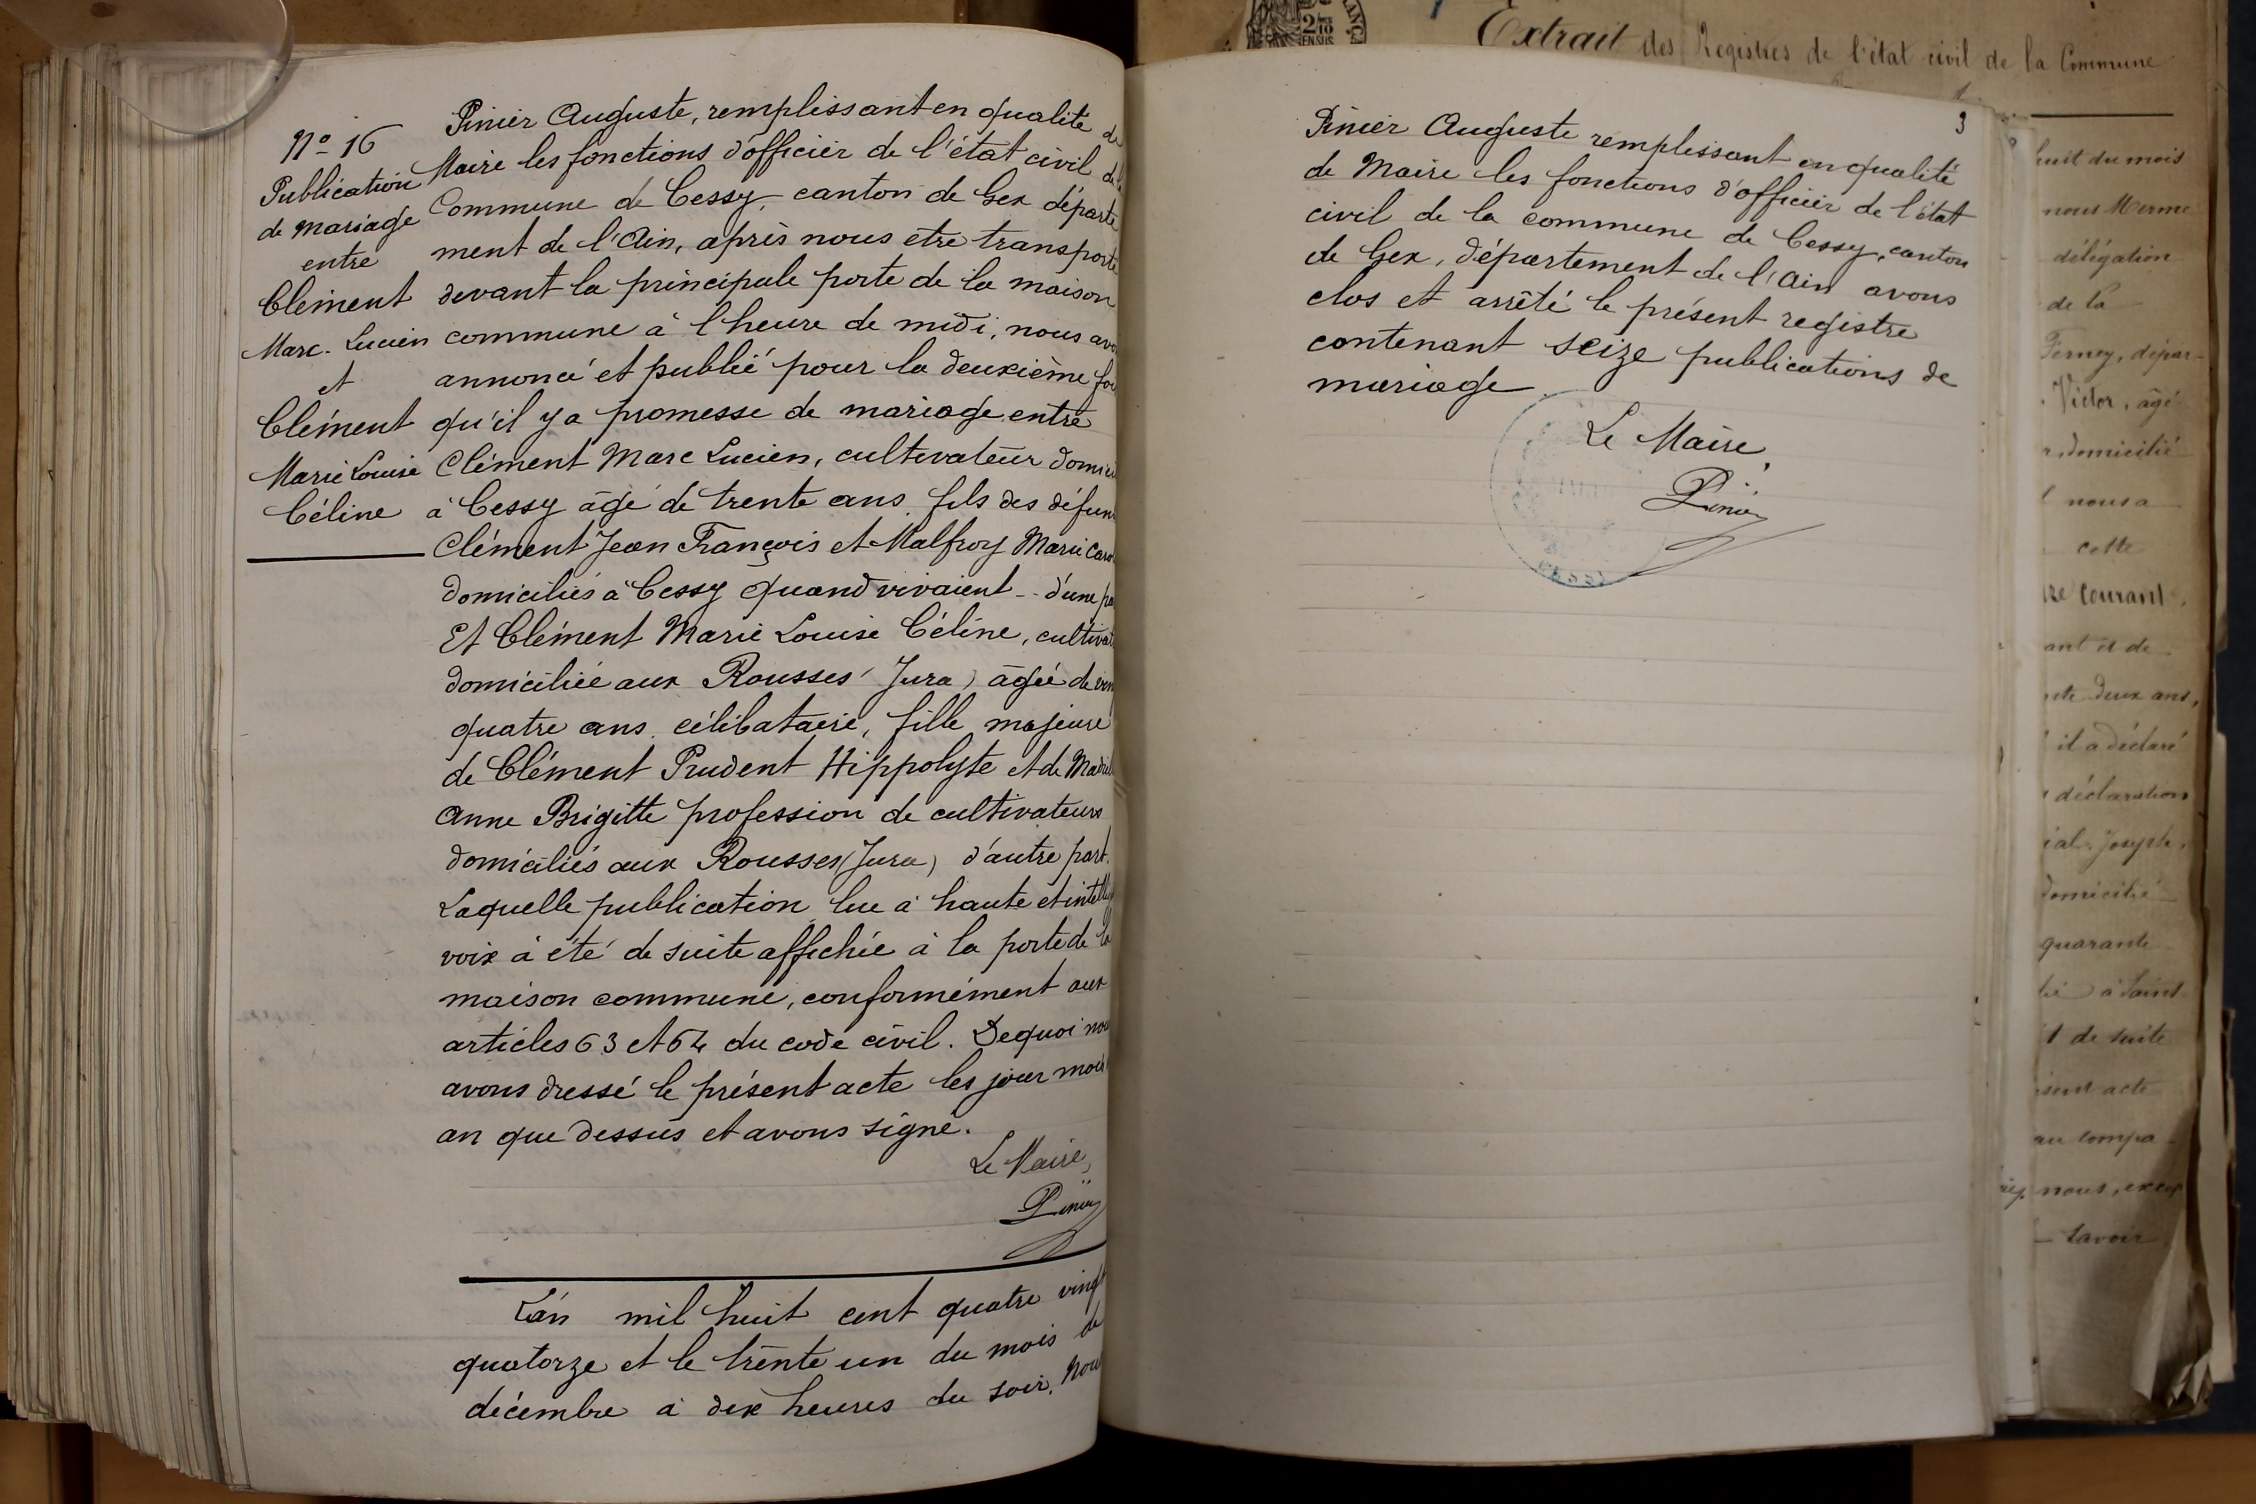 Nº 16
Publication
de mariage
entre
Clément
Marc. Lucien
et
Clément
Marie Louise
Céline
Pinier Auguste, remplissant en qualité de
Maire les fonctions d'officier de l'état civil de la
Commune de Cessy, canton de Gex départe
ment de l'Ain, après nous etre transporté
devant la principale porte de la maison
commune à l'heure de midi, nous avo
annoncé et publié pour la deuxième foi
qu'il y a promesse de mariage entre
Clément Marc Lucien, cultivateur domici
à Cessy âgé de trente ans. fils des défun
Clément Jean François et Malfroy Marie Caro
domiciliés à Cessy quand vivaient -- d'une pa
Et Clément Marie Louise Céline, cultivat
domiciliée aux Rousses (Jura) âgée de vin
quatre ans. célibataire, fille majeure
de Clément Prudent Hippolyte et de
Anne Brigitte profession de cultivateurs
domiciliés aux Rousses (Jura) d'autre part.
Laquelle publication lue à haute et intellig
voix à été de suite affichée à la porte de la
maison commune, conformément aux
articles 63 et 64 du code civil. De quoi nou
avons dressé le présent acte les jour mois
an que dessus et avons signé.
Le Maire,
Pinier
L'an mil huit cent quatre vingt
quatorze et le trente un du mois de
décembre à dix heures du soir, Nous
3
Pinier Auguste remplissant en qualité
de Maire les fonctions d'officier de l'état
civil de la commune de Cessy, canton
de Gex, département de l'Ain avons
clos et arrêté le présent registre
contenant seize publications de
mariage
Le Maire,
Pinier
Extrait des Registres de l'état civil de la Commune
huit du mois
nous Merme
délégation
de la
Ferney, dépar-
Victor, âgé
domicilié
nous a
cette
courant.
ant et de
nte deux ans,
il a déclaré
déclaration
ial Joseph,
domicilié
quarante
à Saint
de suite
sent acte
au compa
nous, excep
savoir